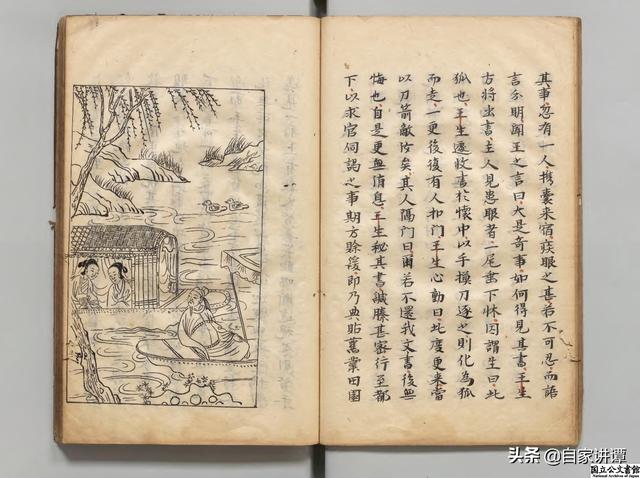 其事忽有一人携囊來宿疾眼之甚若不可忍而語
言分明聞王之言曰大是奇事如何得見其書王生
方將出書主人見患眼者一尾垂下牀因謂生曰此
狐也王生遽收書於懷中以手摸刀逐之則化為狐
而走一更後復有人扣門王生心動曰此度更來當
以刀箭敵汝矣其人隔門曰爾若不還我文書後無
悔也自是更無消息王生秘其書緘縢甚密行至都
下以求官伺謁之事期方賒緩即乃典貼舊業田園
头条 @自家讲谭
国立公文書館
National Archives of Japan